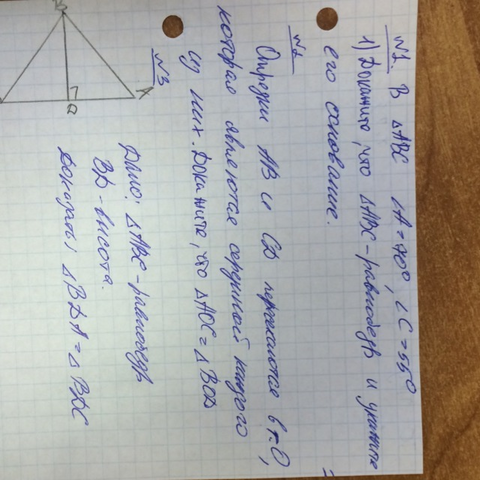 №1. В ΔABC ∠A = 70°, ∠C = 55°
1) Докажите, что ΔABC - равнобедр и укажите
его основание.
№2
Отрезки AB и CD пересекаются в т. O,
которая является серединой каждого
из них. Докажите, что ΔAOC = ΔBOD
№3
Дано: ΔABC - равнобедр
BD - высота.
Доказать: ΔBDA = ΔBDC
B
D
A